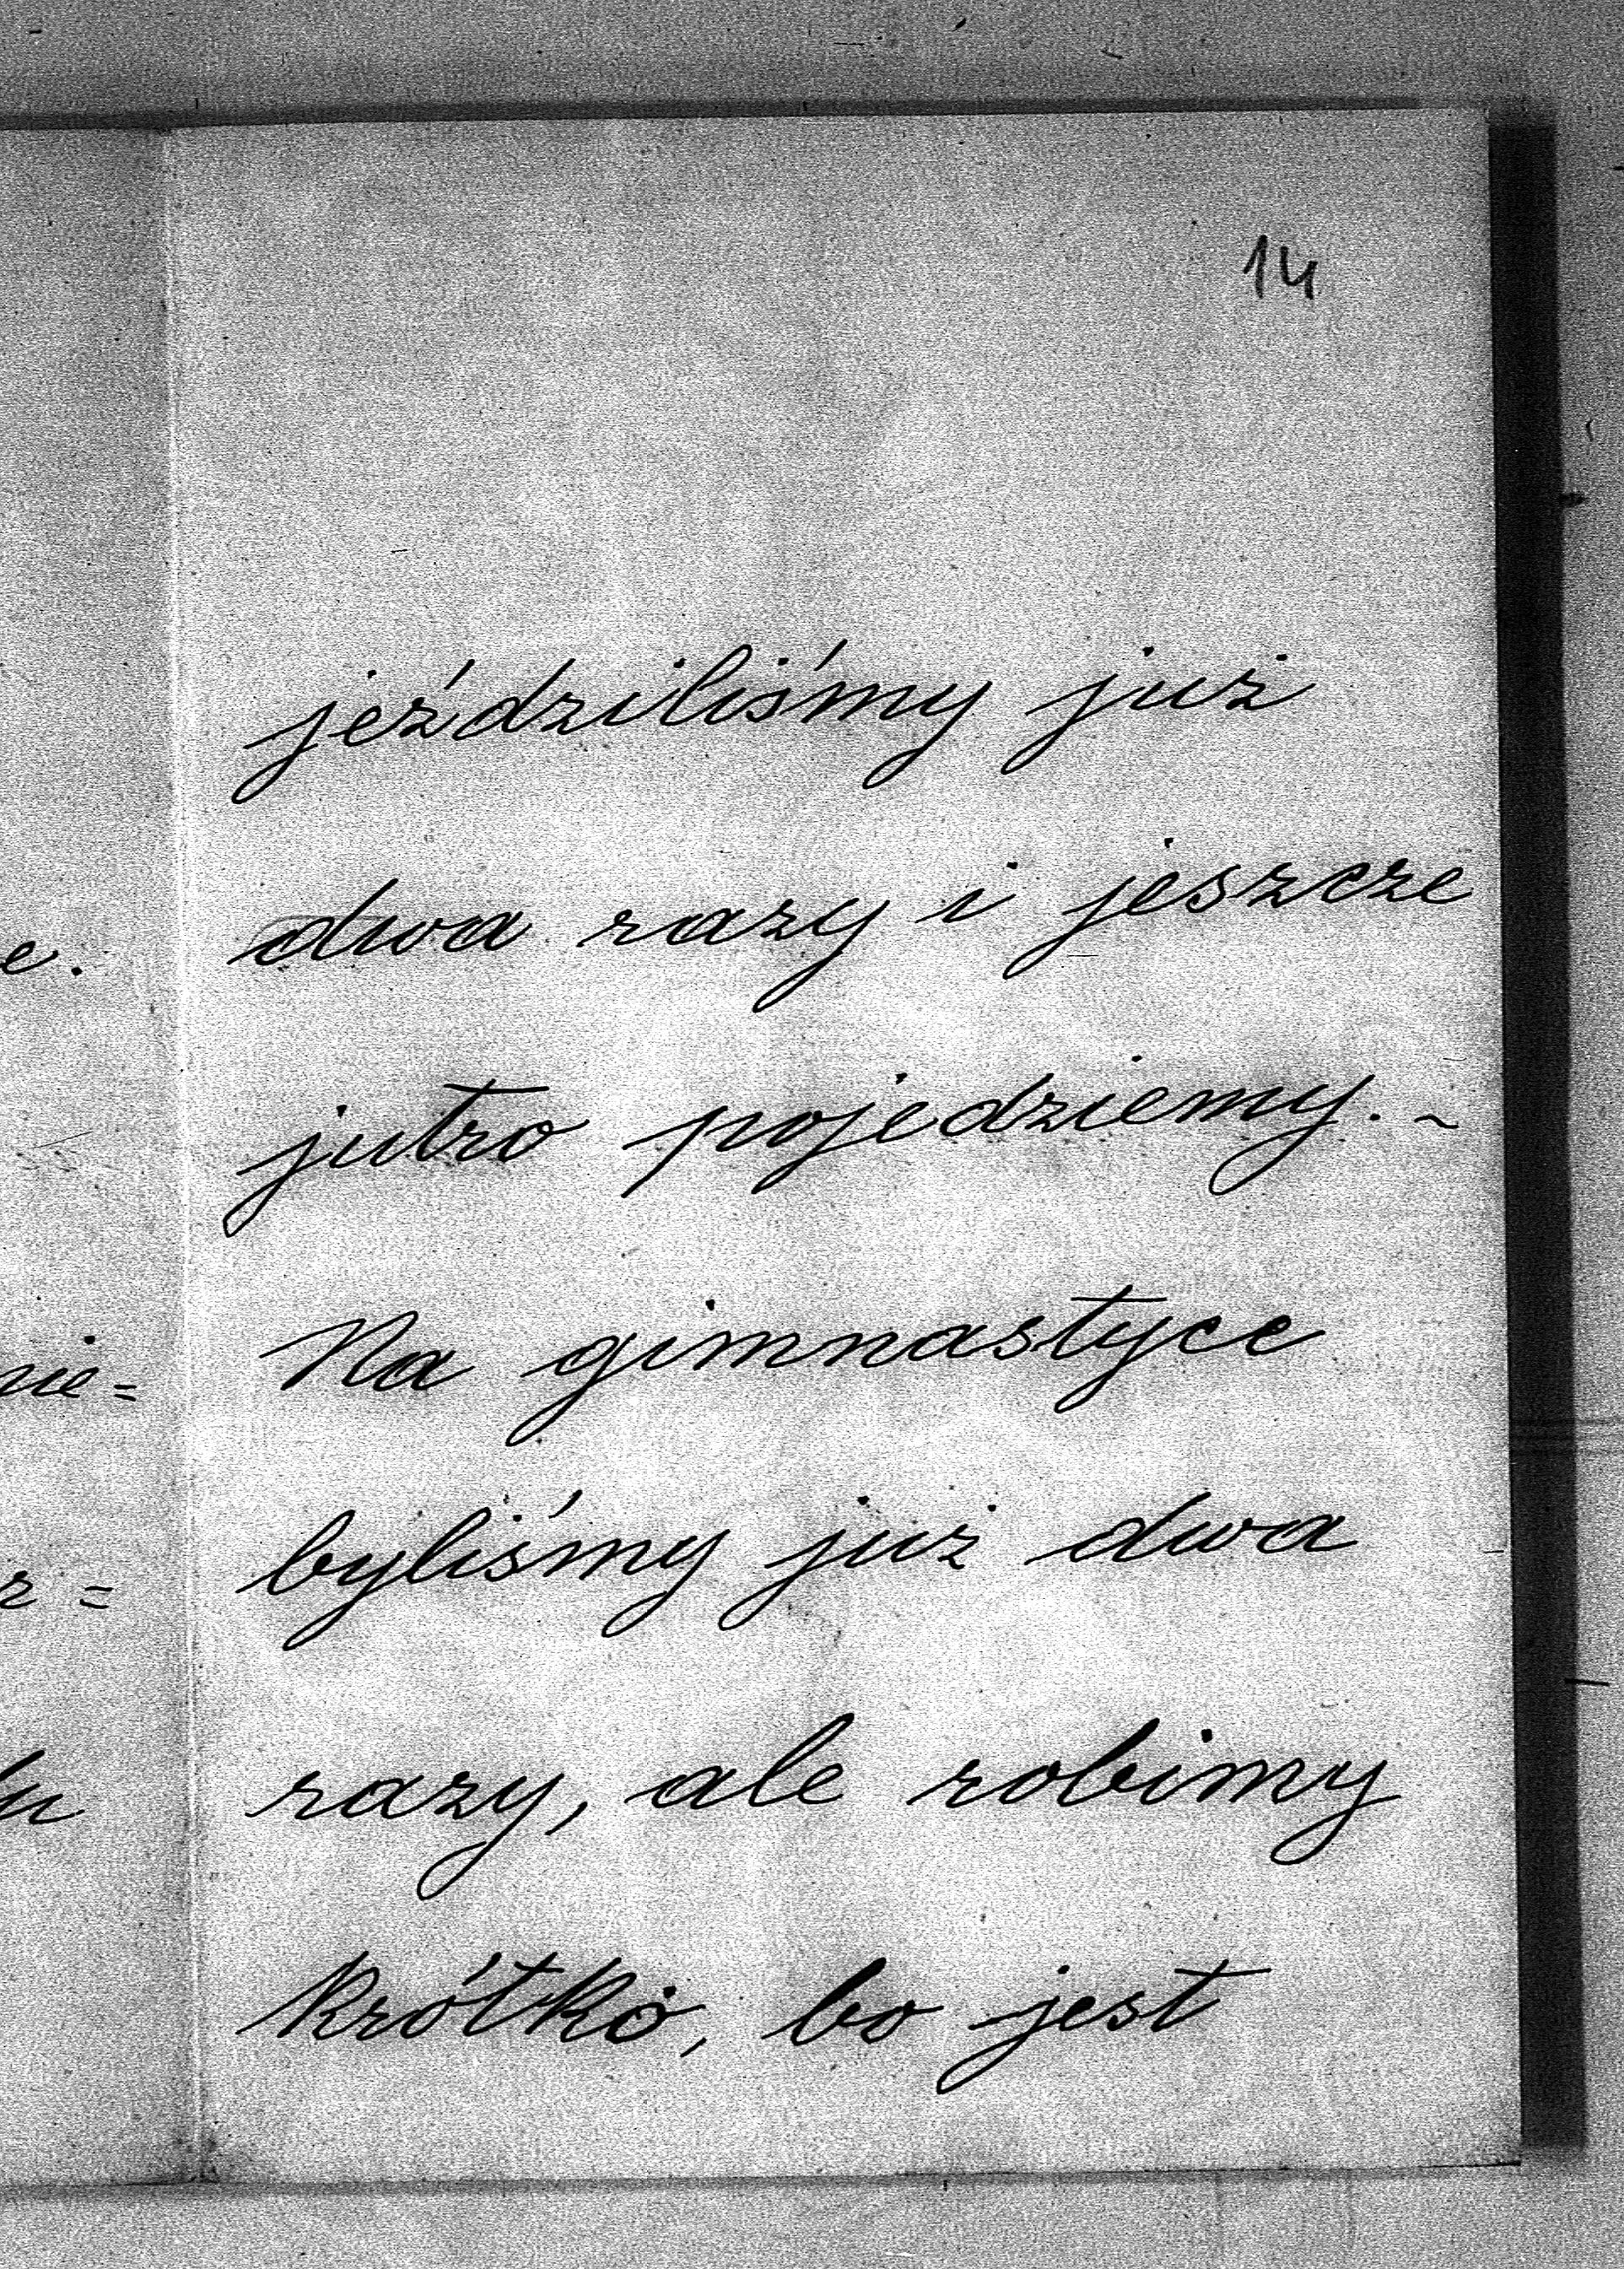 14
jeździliśmy już
dwa razy i jeszcze
jutro pojedziemy. ~
Na gimnastyce
byliśmy już dwa
razy, ale robimy
krótko, bo jest